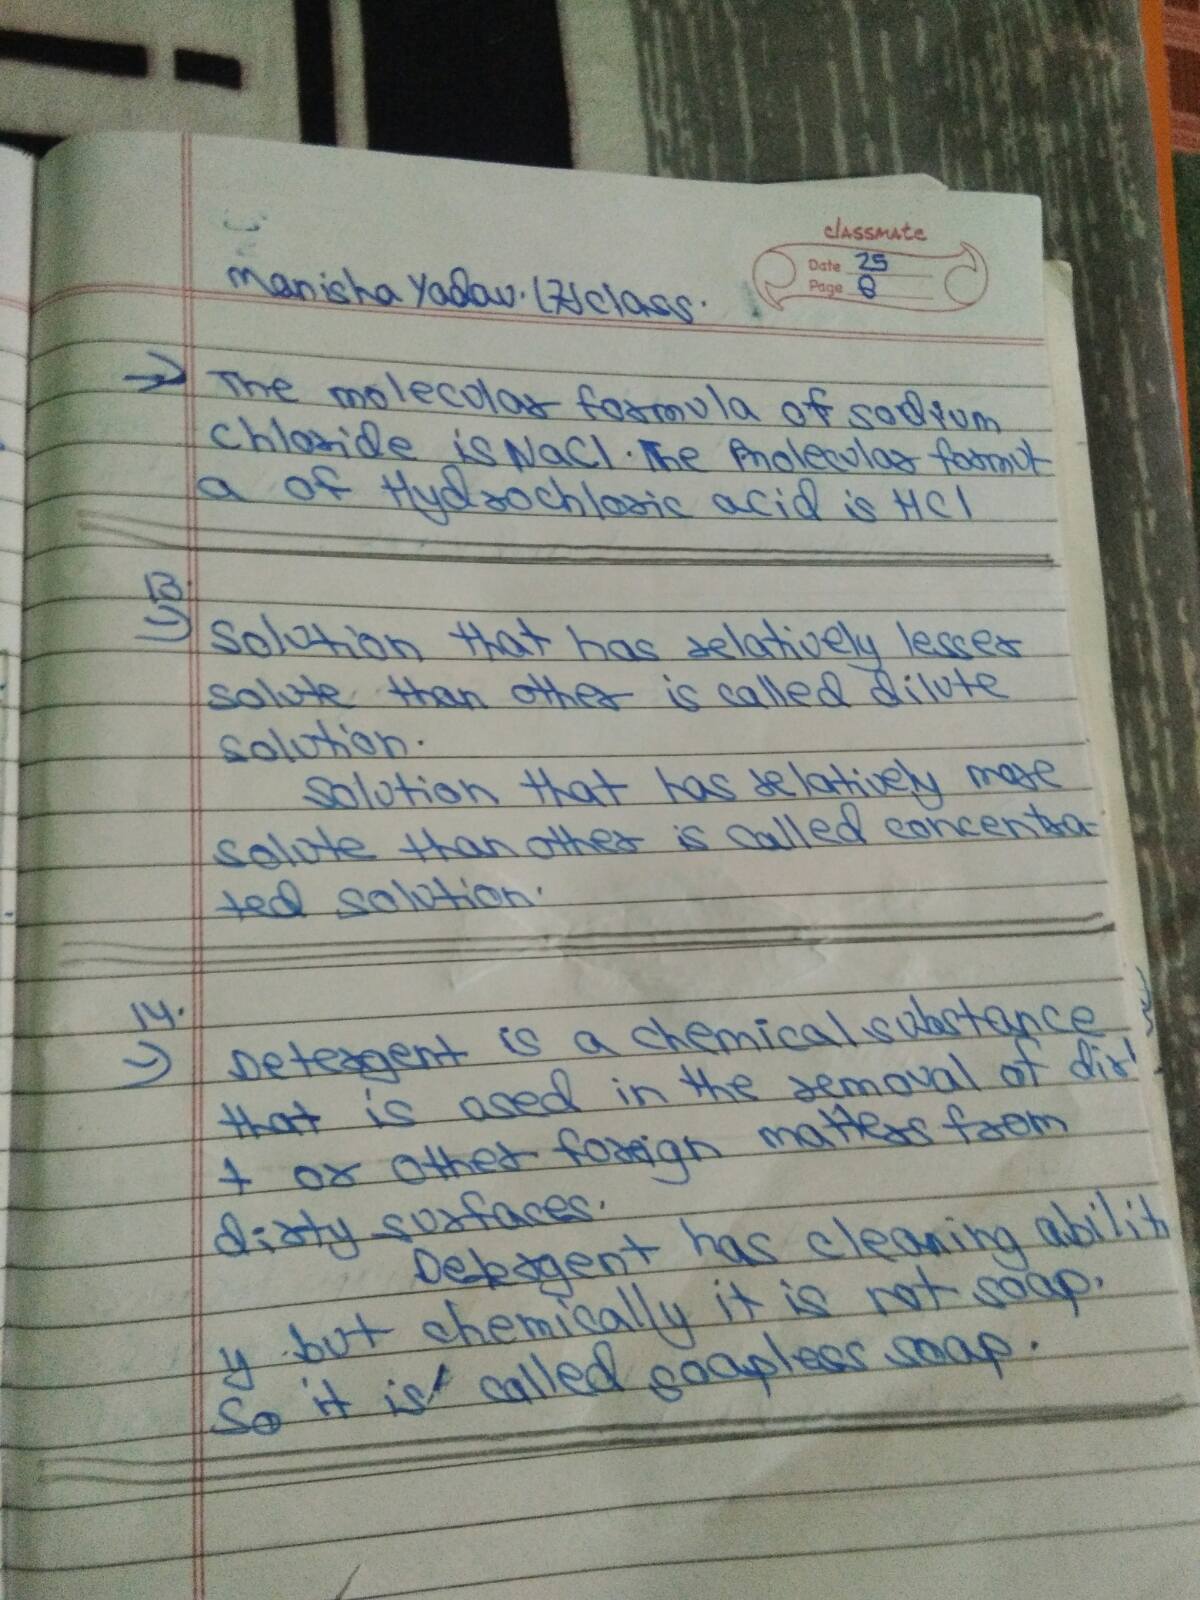 classmate
Date 25
Page 8
Manisha Yadav. (7) class.
→ The molecular formula of sodium
chloride is NaCl. The molecular formul
a of Hydrochloric acid is HCl
13.
→ Solution that has relatively lesser
solute than other is called dilute
solution.
Solution that has relatively more
solute than other is called concentra-
ted solution.
14.
→ Detergent is a chemical substance
that is used in the removal of dir
t or other foreign matters from
dirty surfaces.
Detergent has cleaning abilit
y but chemically it is not soap.
So it is called soapless soap.